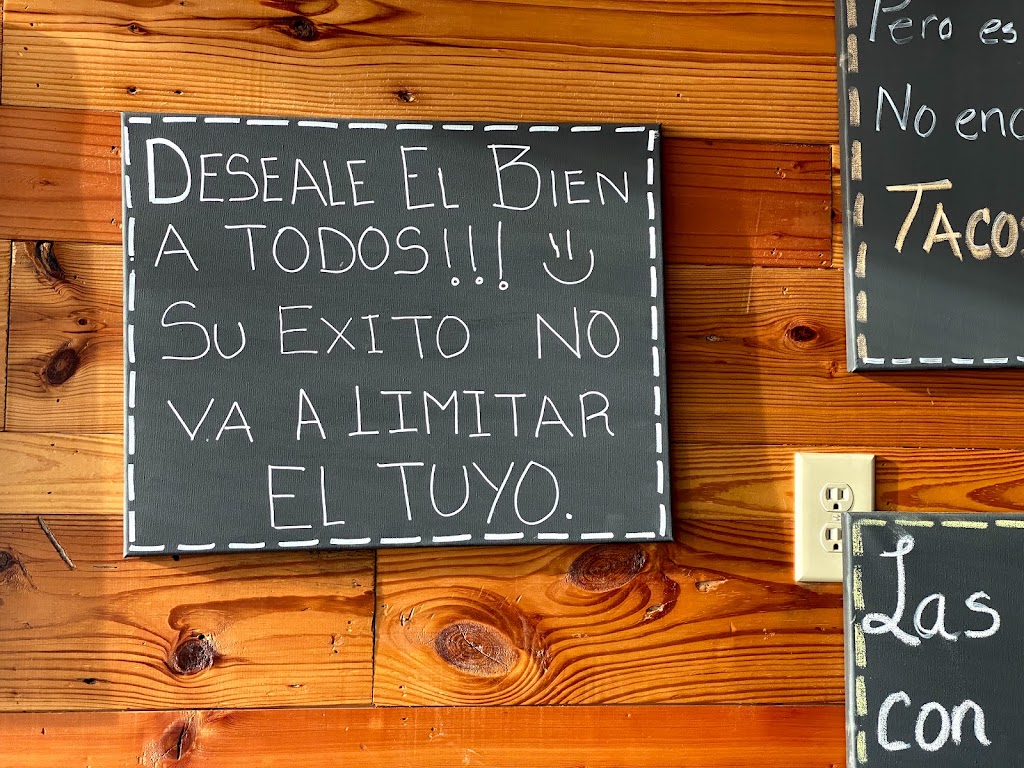 DESEALE EL BIEN
A TODOS!!!
SU EXITO NO
VA A LIMITAR
EL TUYO.
Pero es
No enc
TACOS
Las
con